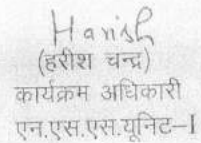 Harish
(हरीश चन्द्र)
कार्यक्रम अधिकारी
एन.एस.एस.यूनिट–I